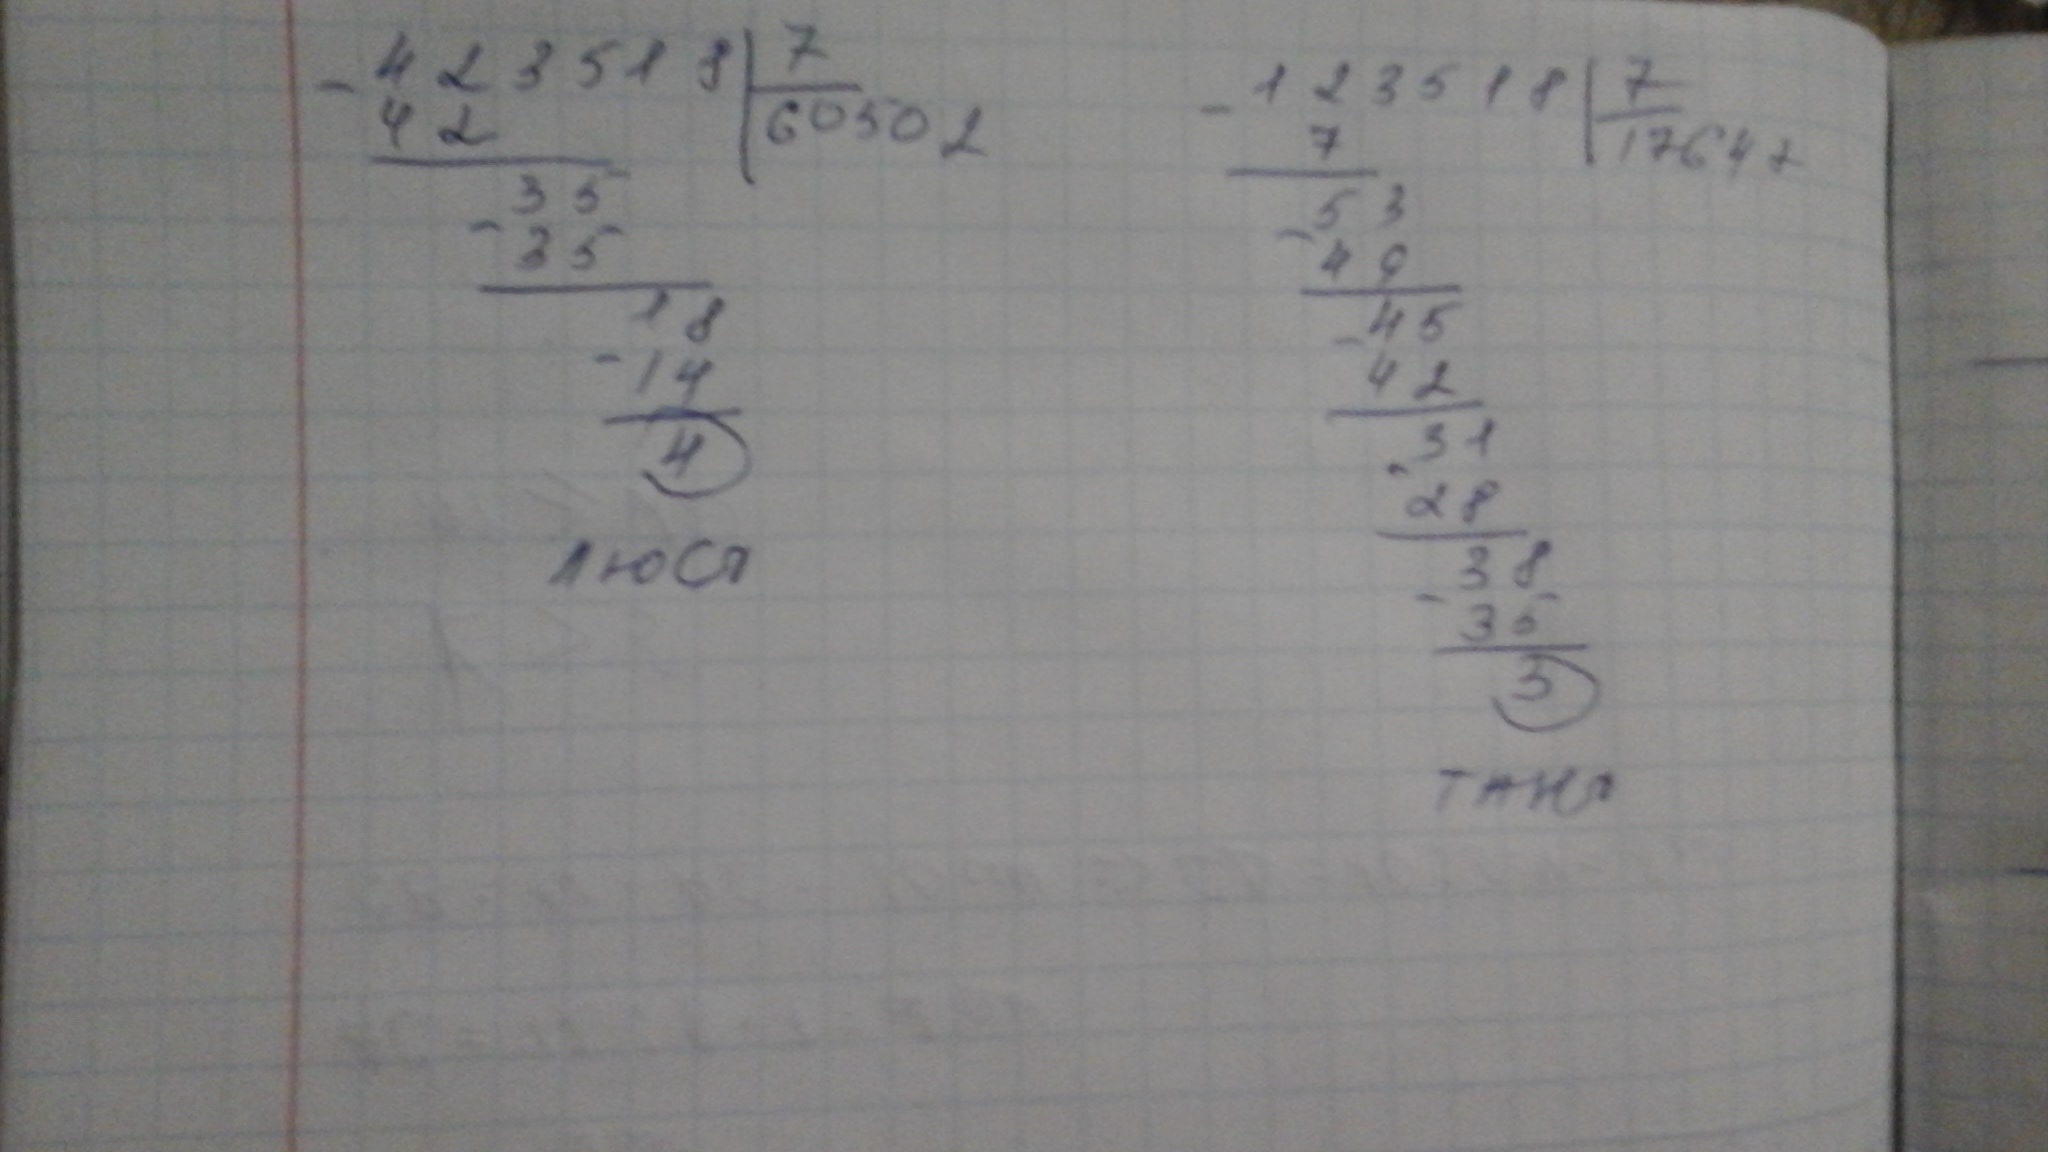 - 423518 | 7
42 | 60502
35
- 35
18
- 14
4
ЛЮСЯ
- 123518 | 7
7 | 17647
53
- 49
45
- 42
31
- 28
38
- 35
3
ТАНЯ